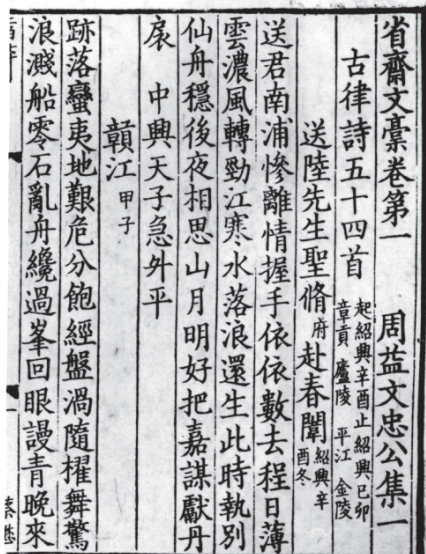 省齋文藁卷第一 周益文忠公集一
古律詩五十四首 起紹興辛酉止紹興已卯
章貢 廬陵 平江 金陵
送陸先生聖脩府赴春闈 紹興辛
酉冬
送君南浦慘離情握手依依數去程日薄
雲濃風轉勁江寒水落浪還生此時執別
仙舟穩後夜相思山月明好把嘉謀獻丹
扆 中興天子急升平
贑江 甲子
跡落蠻夷地艱危分飽經盤渦隨櫂舞驚
浪濺船零石亂舟纔過峯回眼謾青晚來